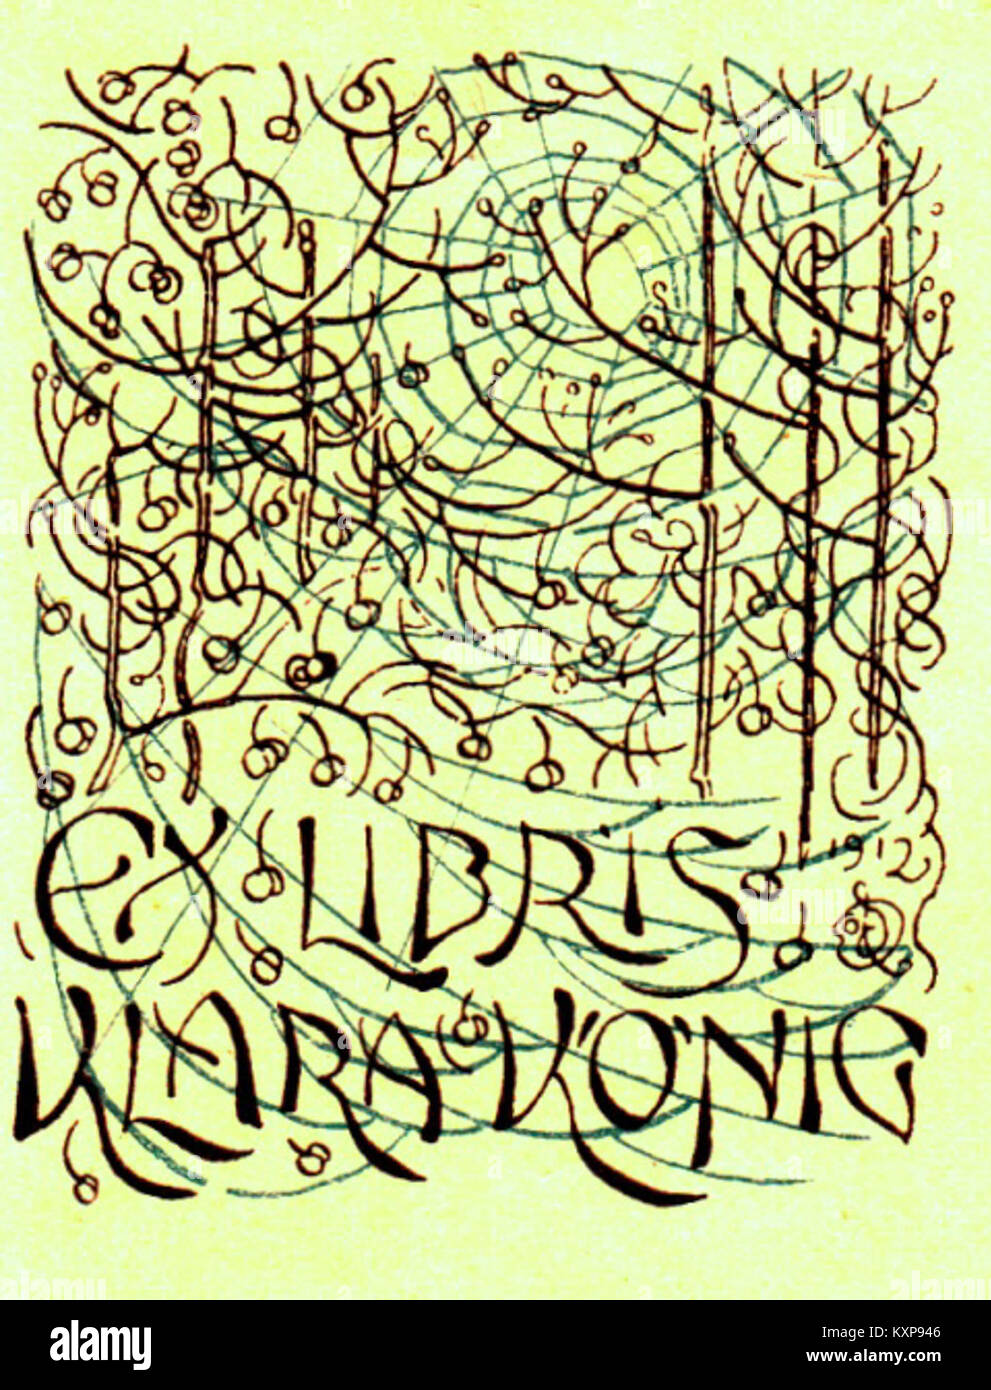 1912
EX LIBRIS
KLARA KÖNIG
alamy
Image ID: KXP946
www.alamy.com